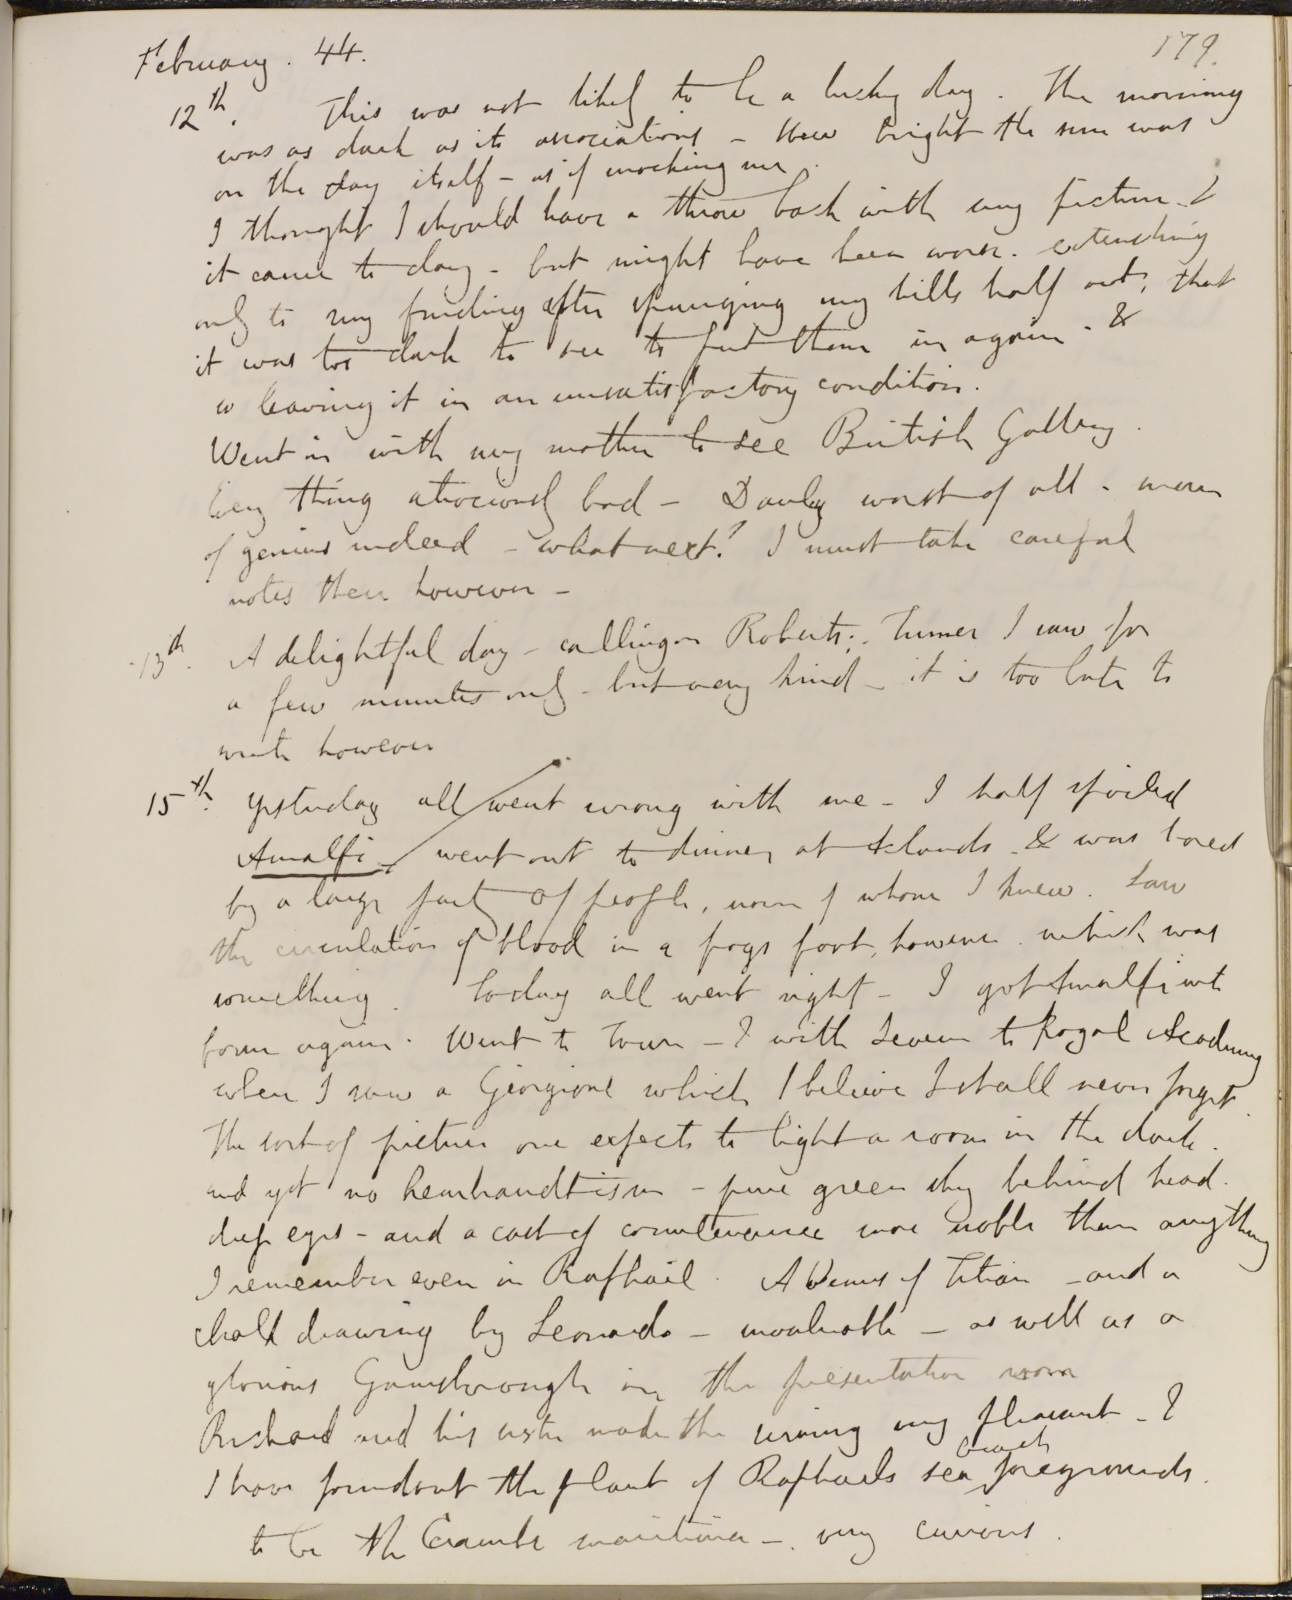 February. 44.
179.
12th. This was not likely to be a lucky day. The morning
was as dark as its associations - How bright the sun was
on the day itself - as if mocking me.
I thought I should have a throw back with my picture &
it came to day - but might have been worse. extending
only to my finding after spunging my hills half out, that
it was too dark to see to put them in again - &
so leaving it in an unsatisfactory condition.
Went in with my mother to see British Gallery.
Every thing atrociously bad - Danby worst of all - men
of genius indeed - what next? I must take careful
notes there however -
13th. A delightful day - calling on Roberts; Turner I saw for
a few minutes only - but very kind - it is too late to
write however
15th. Yesterday all went wrong with me - I half spoiled
Amalfi - went out to dinner at & was bored
by a large party of people, none of whom I knew. Saw
the circulation of blood in a frogs foot, however. which was
something. To-day all went right - I got Amalfi into
form again. Went to Town - & with Severn to Royal Academy
where I saw a Giorgione which I believe I shall never forget.
The sort of picture one expects to light a room in the dark.
and yet no Rembrandtism - pure green sky behind head.
deep eyes - and a cast of countenance more noble than anything
I remember even in Raphael. A Venus of Titian - and a
chalk drawing by Leonardo - invaluable - as well as a
glorious Gainsborough in the presentation room
Richard and his sister made the evening very pleasant - &
I have found out the plant of Raphaels sea beach foregrounds.
to be the Crambe maritima -. very curious.